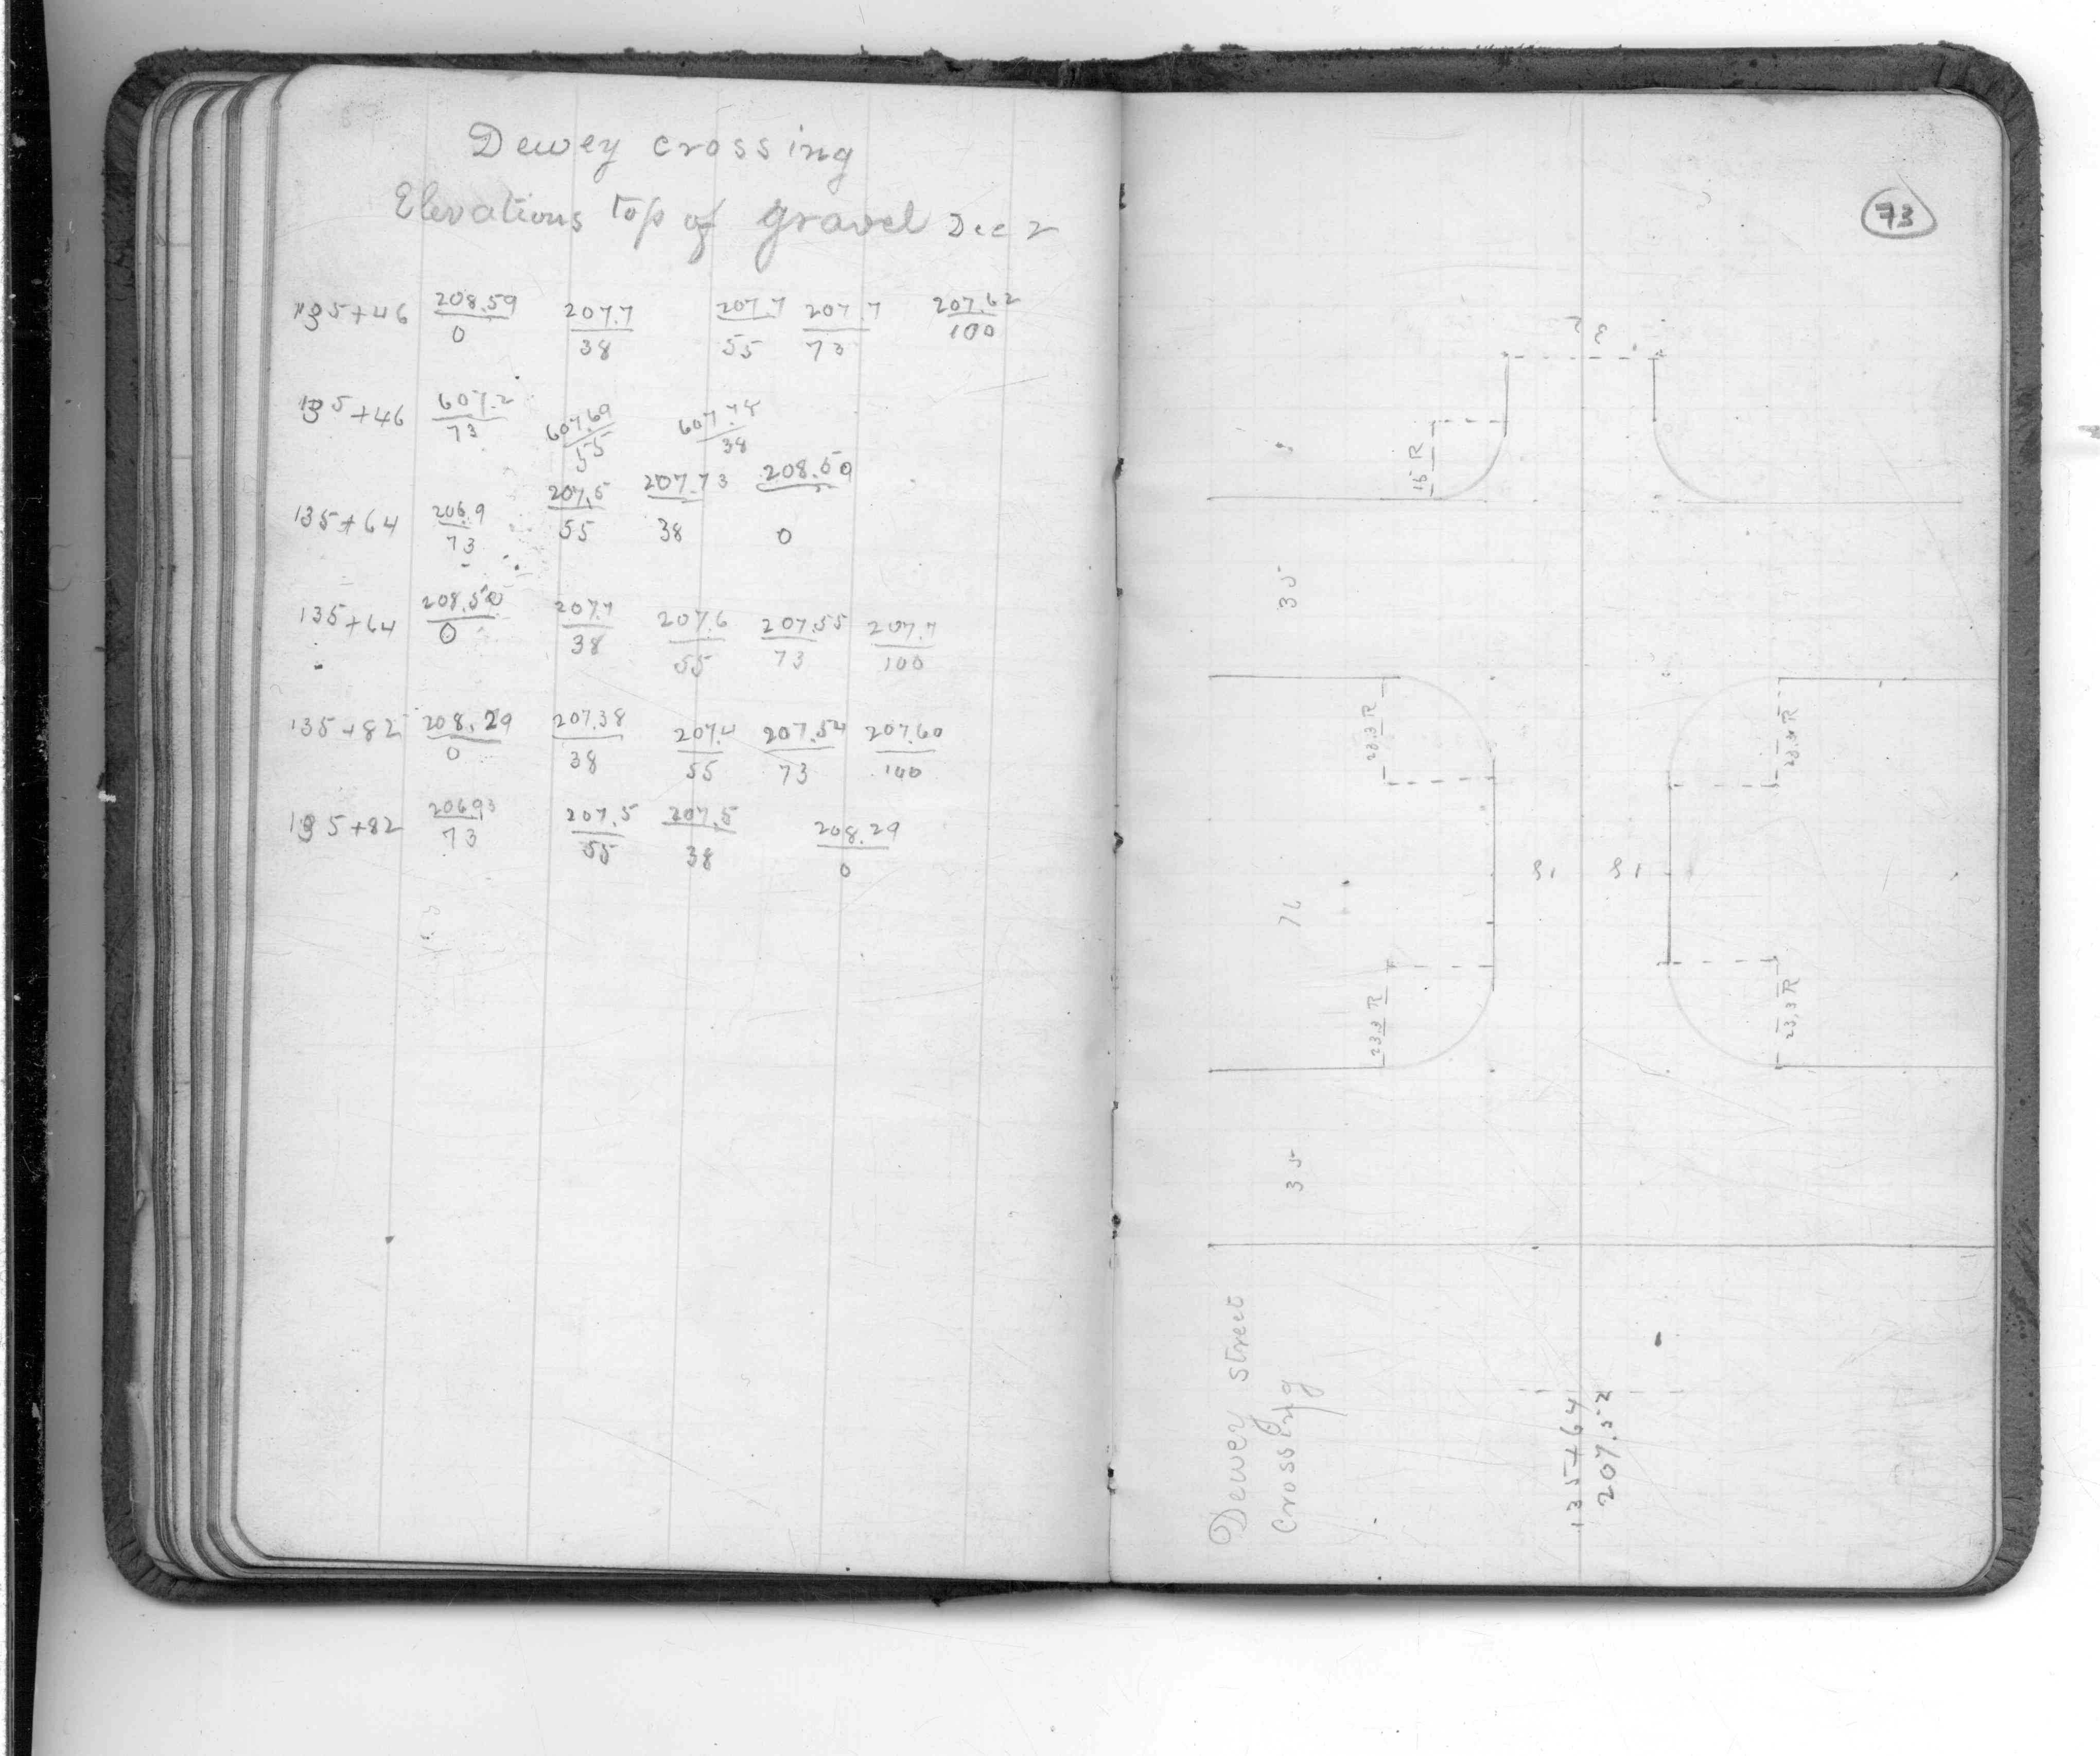 Dewey crossing
Elevations top of gravel Dec 2
135+46 208.59/0 207.7/38 207.7/55 207.7/73 207.62/100
135+46 607.2/73 607.60/55 607.74/38
135+64 206.9/73 207.5/55 207.73/38 208.50/0
135+64 208.50/0 207.7/38 207.6/55 207.55/73 207.7/100
135+82 208.29/0 207.38/38 207.4/55 207.54/73 207.60/100
135+82 206.93/73 207.5/55 207.5/38 208.29/0
73
15 R
35
23.3 R
23.3 R
76
18 18
23.3 R
23.3 R
35
Dewey street
Crossing
135+64
207.52